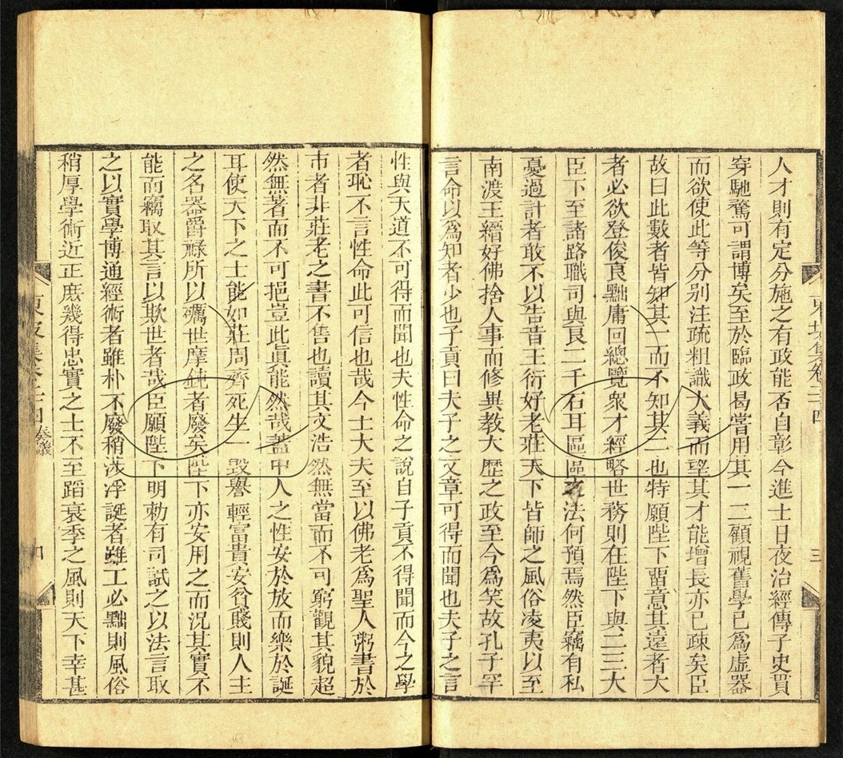 人才則有定分施之有政能否自彰今進士日夜治經傳子史貫
穿馳騖可謂博矣至於臨政曷嘗用其一二顧視舊學已爲虛器
而欲使此等分別注疏粗識大義而望其才能增長亦已疎矣臣
故曰此數者皆知其一而不知其二也特願陛下畱意其遠者大
者必欲登俊良黜庸回總覽衆才經畧世務則在陛下與二三大
臣下至諸路職司與良二千石耳區區之法何預焉然臣竊有私
憂過計者敢不以告昔王衍好老莊天下皆師之風俗淩夷以至
南渡王縉好佛捨人事而修異教大歷之政至今爲笑故孔子罕
言命以爲知者少也子貢曰夫子之文章可得而聞也夫子之言
性與天道不可得而聞也夫性命之說自子貢不得聞而今之學
者恥不言性命此可信也哉今士大夫至以佛老爲聖人粥書於
市者非莊老之書不售也讀其文浩然無當而不可窮觀其貌超
然無著而不可挹豈此眞能然哉蓋中人之性安於放而樂於誕
耳使天下之士能如莊周齊死生一毀譽輕富貴安貧賤則人主
之名器爵祿所以礪世摩鈍者廢矣陛下亦安用之而況其實不
能而竊取其言以欺世者哉臣願陛下明勅有司試之以法言取
之以實學博通經術者雖朴不廢稍涉浮誕者雖工必黜則風俗
稍厚學術近正庶幾得忠實之士不至蹈衰季之風則天下幸甚
東坡集卷二十四 奏議
十
東坡集卷二十四
三